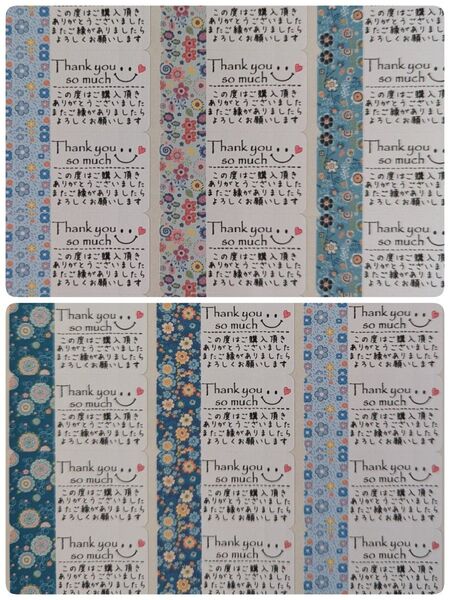 この度はご購入頂き
ありがとうございました
またご縁がありましたら
よろしくお願いします
Thank you
so much
この度はご購入頂き
ありがとうございました
またご縁がありましたら
よろしくお願いします
Thank you
so much
この度はご購入頂き
ありがとうございました
またご縁がありましたら
よろしくお願いします
Thank you
so much
この度はご購入頂き
ありがとうございました
またご縁がありましたら
よろしくお願いします
この度はご購入頂き
ありがとうございました
またご縁がありましたら
よろしくお願いします
Thank you
so much
この度はご購入頂き
ありがとうございました
またご縁がありましたら
よろしくお願いします
Thank you
so much
この度はご購入頂き
ありがとうございました
またご縁がありましたら
よろしくお願いします
Thank you
so much
この度はご購入頂き
ありがとうございました
またご縁がありましたら
よろしくお願いします
この度はご購入
ありがとうござい
またご縁があり
よろしくお願い
Thank you
so much
この度はご購入
ありがとうござい
またご縁があり
よろしくお願い
Thank you
so much
この度はご購入
ありがとうござい
またご縁があり
よろしくお願い
Thank you
so much
この度はご購入
ありがとうござい
またご縁があり
よろしくお願い
Thank you
so much
この度はご購入頂き
ありがとうございました
またご縁がありましたら
よろしくお願いします
Thank you
so much
この度はご購入頂き
ありがとうございました
またご縁がありましたら
よろしくお願いします
Thank you
so much
この度はご購入頂き
ありがとうございました
またご縁がありましたら
よろしくお願いします
Thank you
so much
この度はご購入頂き
ありがとうございました
またご縁がありましたら
よろしくお願いします
Thank you
so much
この度はご購入頂き
ありがとうございました
またご縁がありましたら
よろしくお願いします
Thank you
so much
この度はご購入頂き
ありがとうございました
またご縁がありましたら
よろしくお願いします
Thank you
so much
この度はご購入頂き
ありがとうございました
またご縁がありましたら
よろしくお願いします
Thank you
so much
この度はご購入頂き
ありがとうございました
またご縁がありましたら
よろしくお願いします
Thank you
so much
この度はご購入頂き
ありがとうございました
またご縁がありましたら
よろしくお願いします
Thank you
so much
この度はご購入頂き
ありがとうございました
またご縁がありましたら
よろしくお願いします
Thank you
so much
この度はご購入頂き
ありがとうございました
またご縁がありましたら
よろしくお願いします
Thank you
so much
この度はご購入頂き
ありがとうございました
またご縁がありましたら
よろしくお願いします